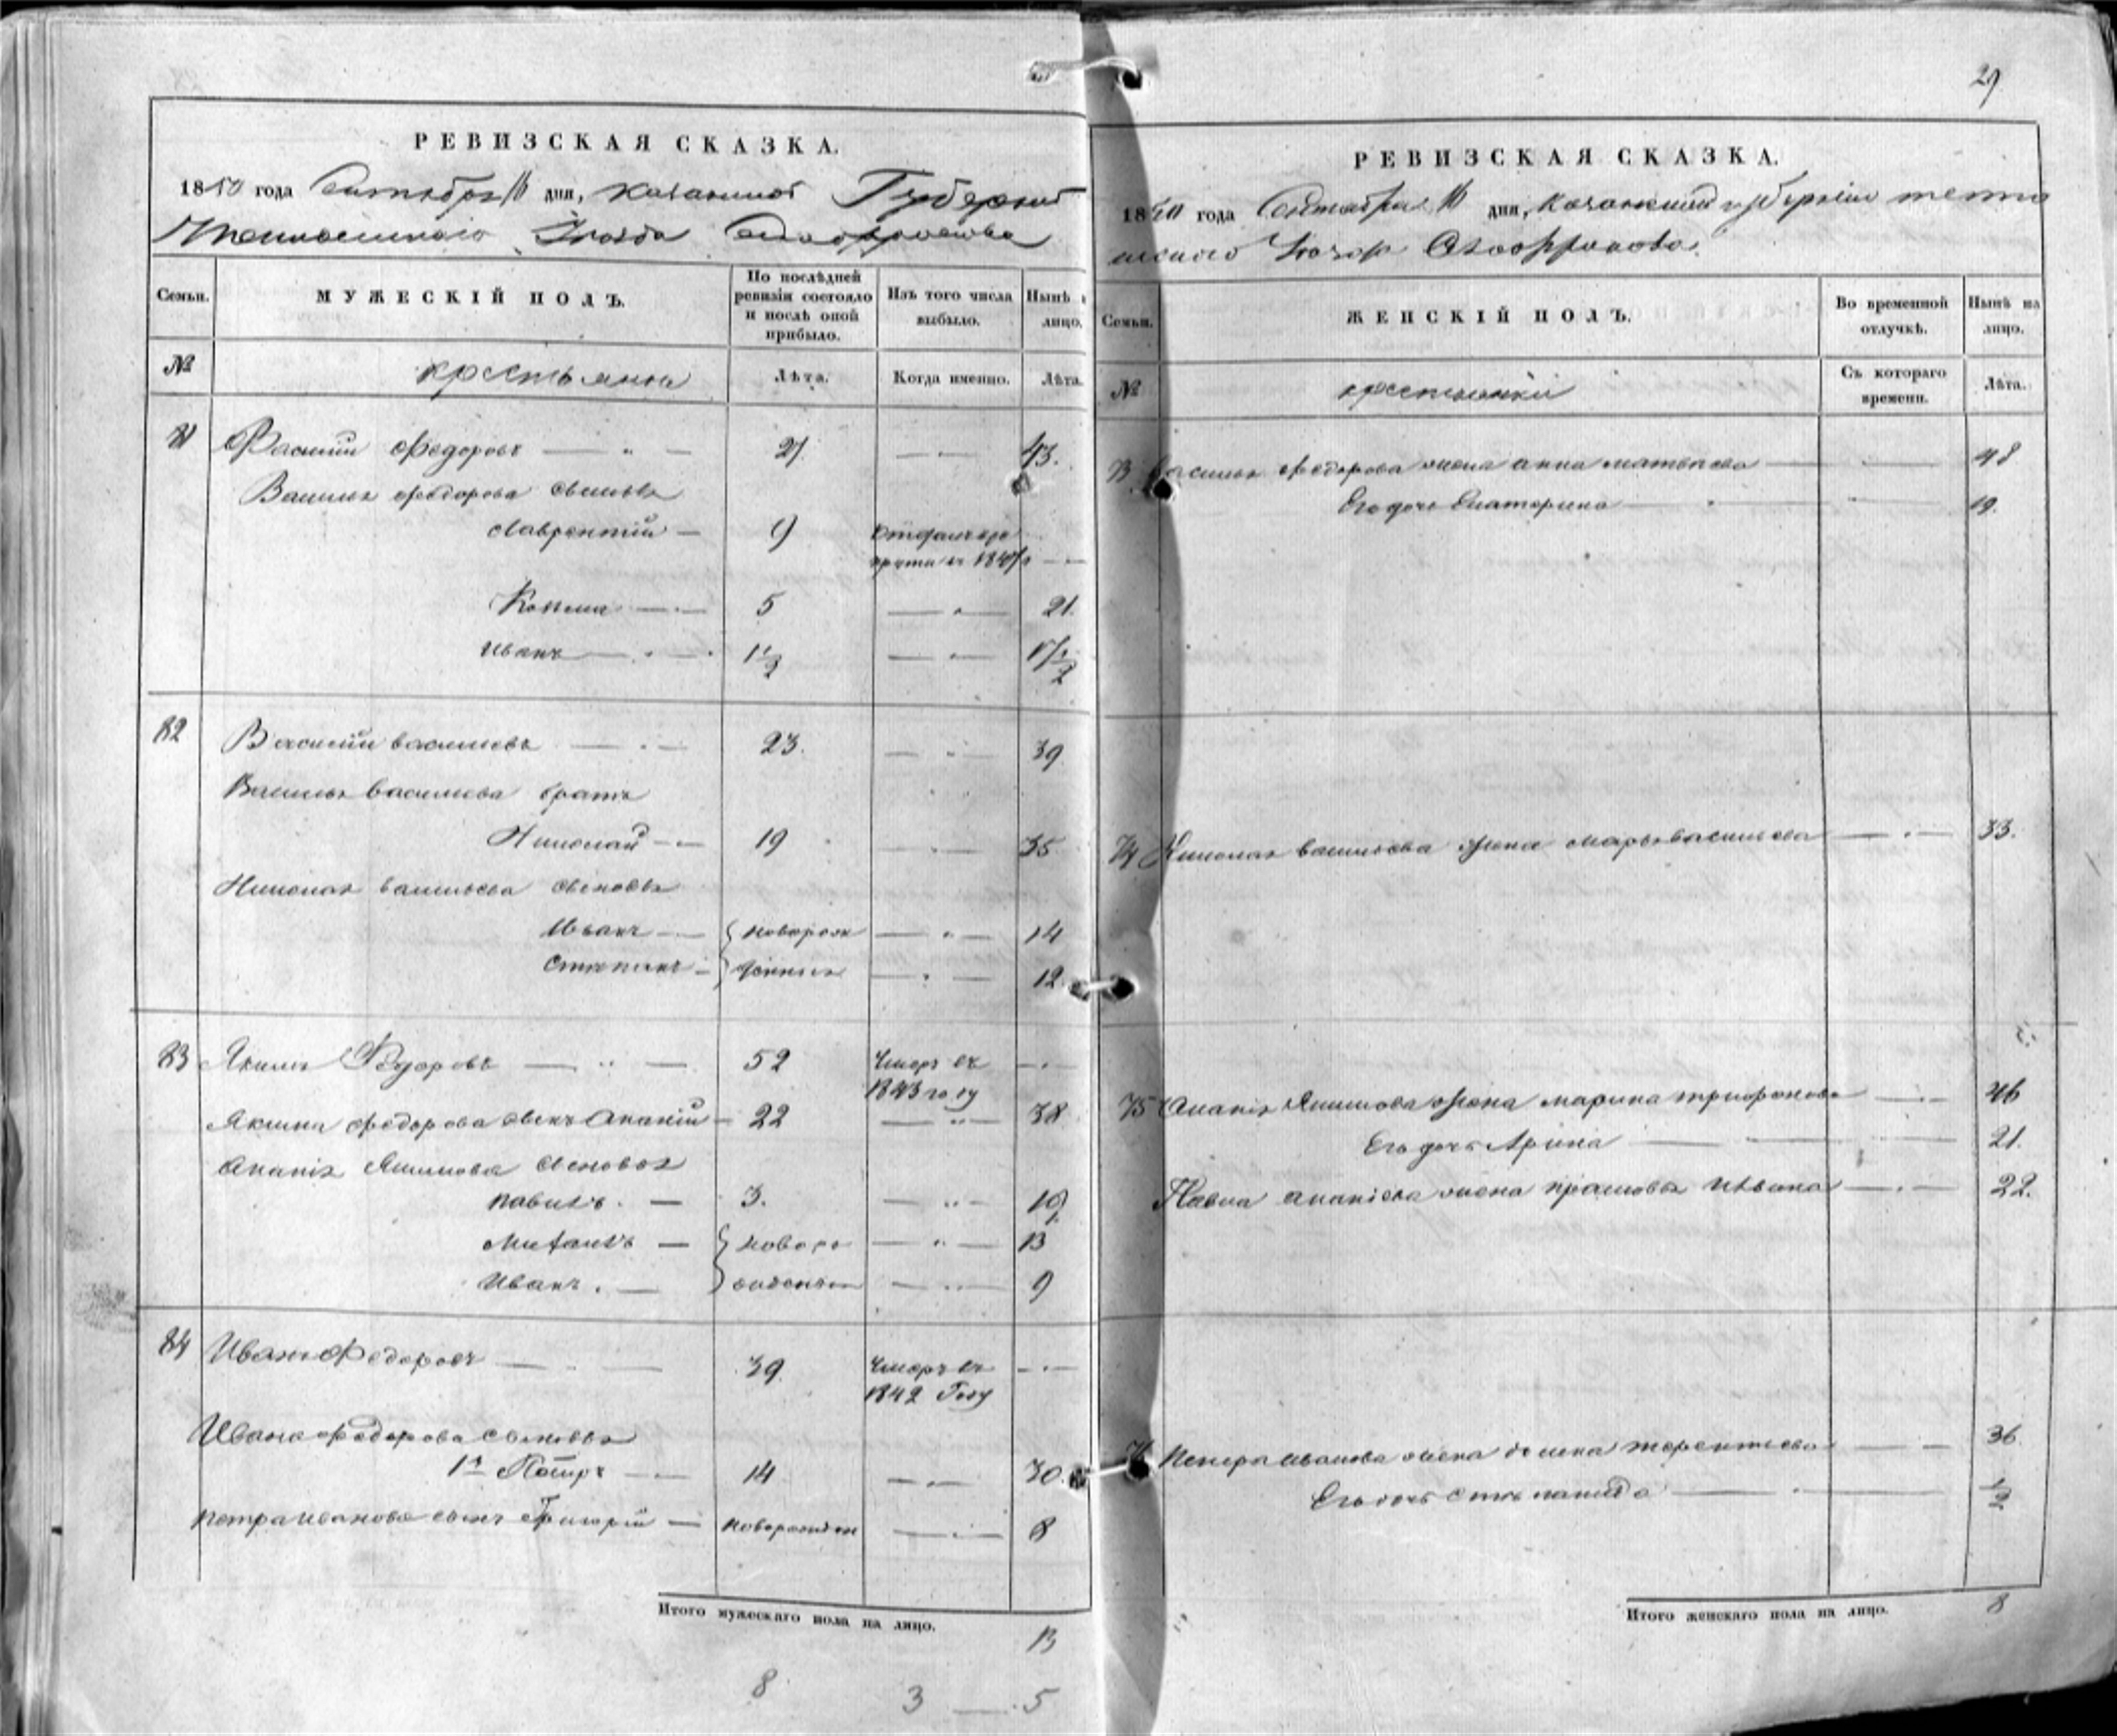 РЕВИЗСКАЯ СКАЗКА.
1850 года Сентября 16 дня, Казанской Губернии
Уезда
Семьи.
МУЖЕСКІЙ ПОЛЪ.
По послѣдней ревизіи состояло и послѣ оной прибыло.
Изъ того числа выбыло.
Нынѣ лицо.
№
крестьяне
Лѣта.
Когда именно.
Лѣта
81 Василий Федоровъ 27 43.
Василья Федорова сыновья
Лаврентий 9
в 1847
Козма 5 21.
Иванъ 1 1/2 17 1/2
82 Василий Васильевъ 23. 39
Василья Васильева братъ
Николай 19 35
Николая Васильева сыновья
Иванъ новорож 14
Степанъ денныя 12.
83 Якимъ Федоровъ 52 Умеръ въ
1843 году
Якима Федорова сынъ Ананий 22 38
Анания Якимова сыновья
Павилъ. 3. 19
Михаилъ новоро 13
Иванъ. 9
84 Иванъ Федоровъ 39. Умеръ въ
1842 Году
Ивана Федорова сыновья
1й Петръ 14 30.
Петра Иванова сынъ Григорий новорожден 8
Итого мужескаго пола на лицо.
13
8 3 5
29
РЕВИЗСКАЯ СКАЗКА.
1850 года Сентября 16 дня, Казанской губернии
Семьи.
ЖЕНСКІЙ ПОЛЪ.
Во временной отлучкѣ.
Нынѣ на лицо.
№
крестьянки
Съ котораго времени.
Лѣта.
73 Василья Федорова жена Анна Матвеева 48
Его дочь Екатерина 19.
74 Николая Васильева жена Марья Васильева 33.
75 Анания Якимова жена Марина Трифонова 46
Его дочь Арина 21.
Павла Ананиева жена Прасковья Ивана 22.
76 Петра Иванова жена Терентьева 36
Его дочь Степанида 1/2
Итого женскаго пола на лицо.
8